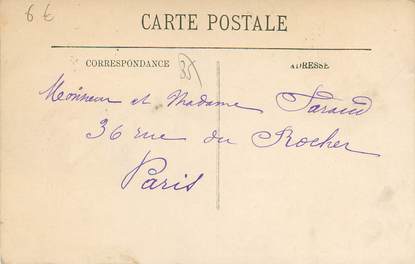 6 €
CARTE POSTALE
CORRESPONDANCE 35 ADRESSE
Monsieur et Madame Faraud
36 rue du Rocher
Paris